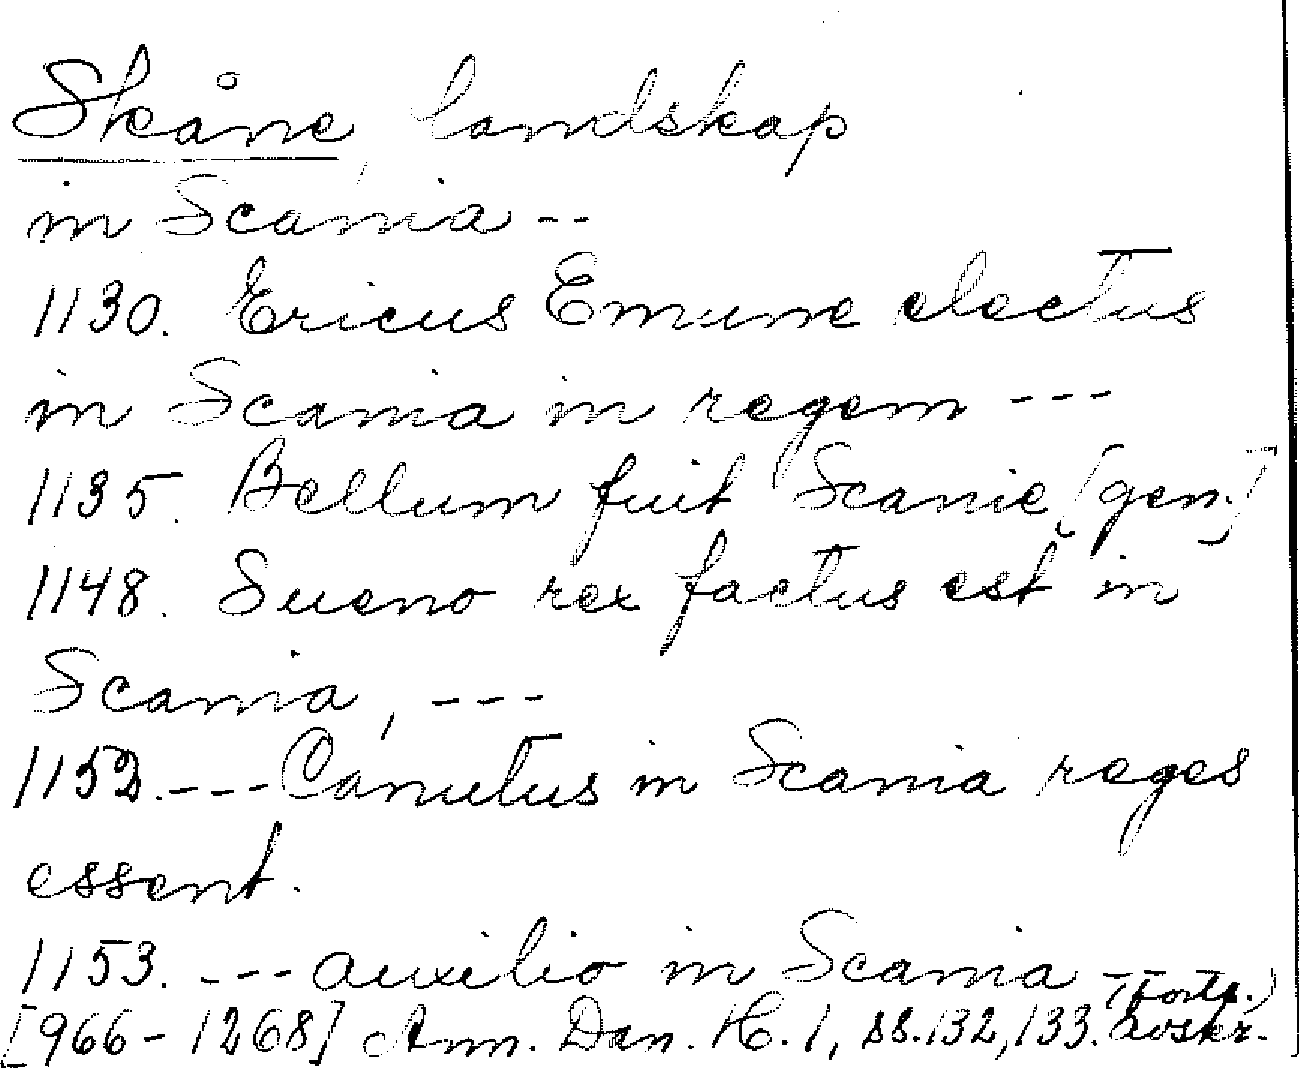 Skåne, landskap
in Scania --
1130. Ericus Emune electus
in Scania in regem ---
1135. Bellum fuit Scanie [gen.]
1148. Sueno rex factus est in
Scania, ---
1152. --- Canutus in Scania reges
essent.
1153. --- auxilio in Scania --
(forts.)
[966-1268] Ann. Dan. H. 1, ss. 132, 133. avskr.